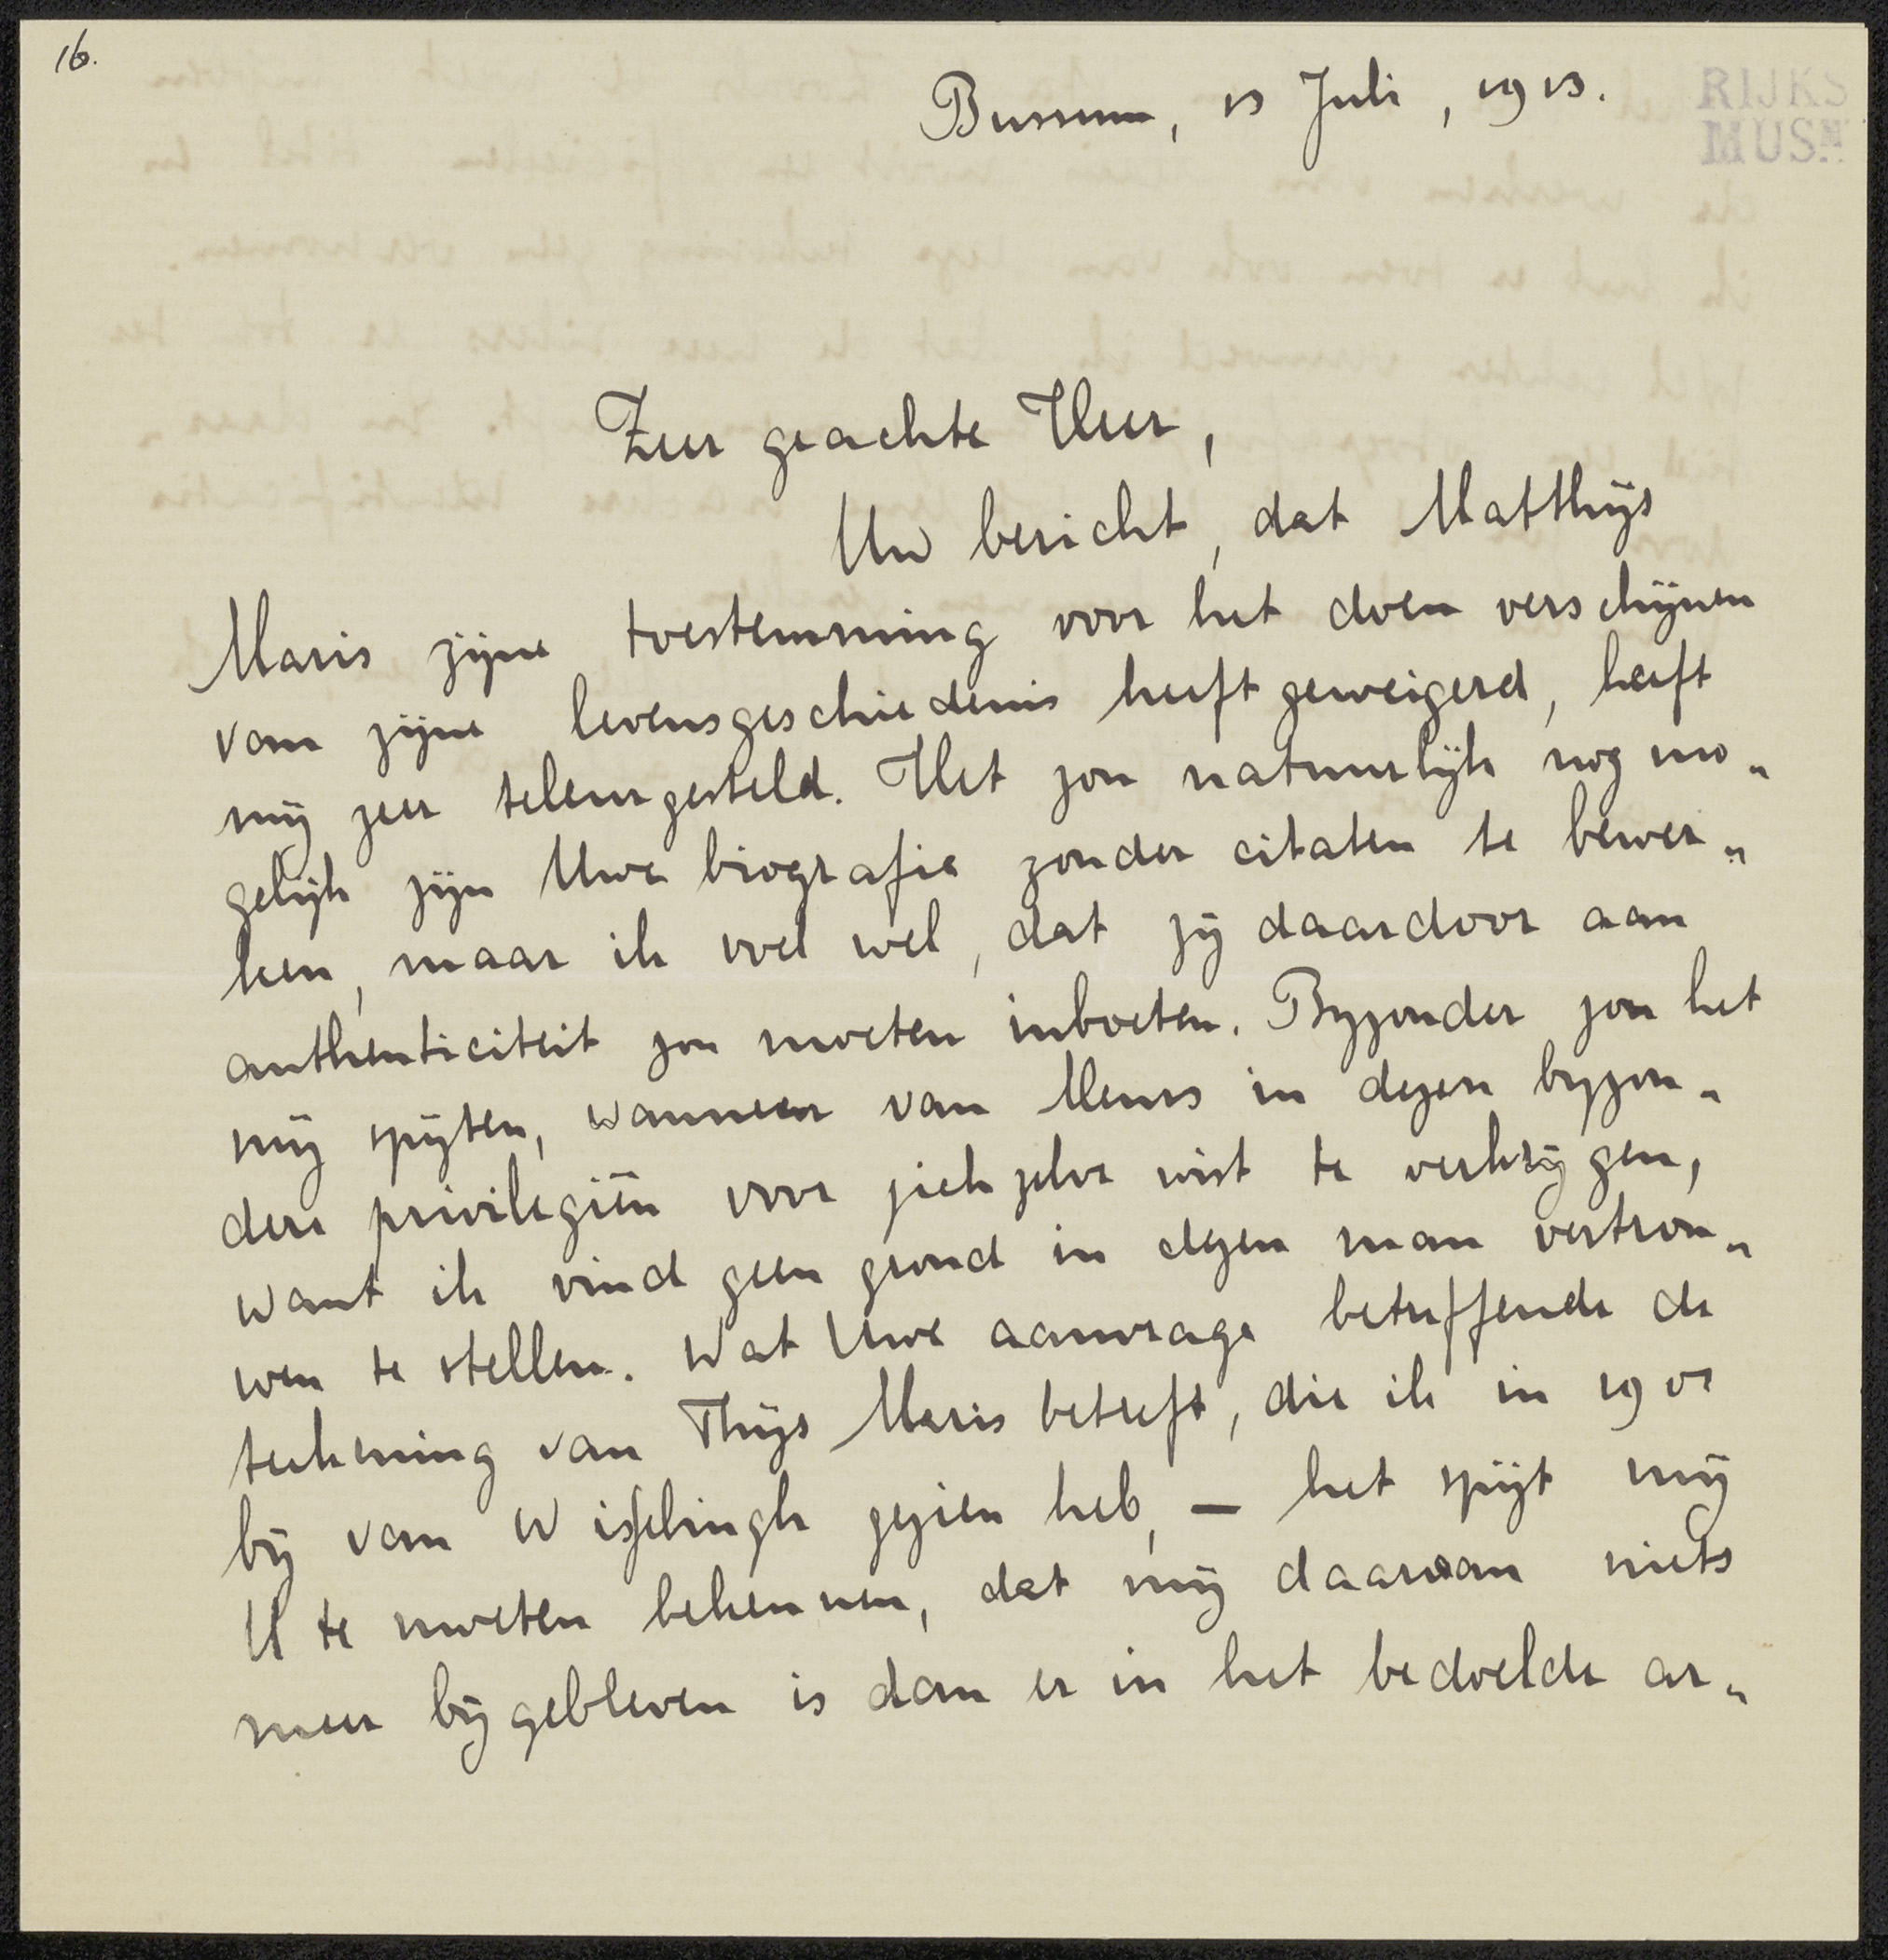 16.
Bussum, 13 Juli, 1913.
RIJKS
MUSM
Zeer geachte Heer,
Uw bericht, dat Matthijs
Maris zijne toestemming voor het doen verschijnen
van zijne levensgeschiedenis heeft geweigerd, heeft
mij zeer teleurgesteld. Het zou natuurlijk nog mo„
gelijk zijn Uwe biografie zonder citaten te bewer„
ken, maar ik voel wel, dat zij daardoor aan
authenticiteit zou moeten inboeten. Byzonder zou het
mij spijten, wanneer van Meurs in dezen byzon„
dere privilegiën voor zich zelve wist te verkrijgen,
want ik vind geen grond in dezen man vertrou„
wen te stellen. Wat Uwe aanvrage betreffende de
teekening van Thijs Maris betreft, die ik in 1901
bij van Wisselingh gezien heb, — het spijt mij
U te moeten bekennen, dat mij daarvan niets
meer bijgebleven is dan er in het bedoelde ar„